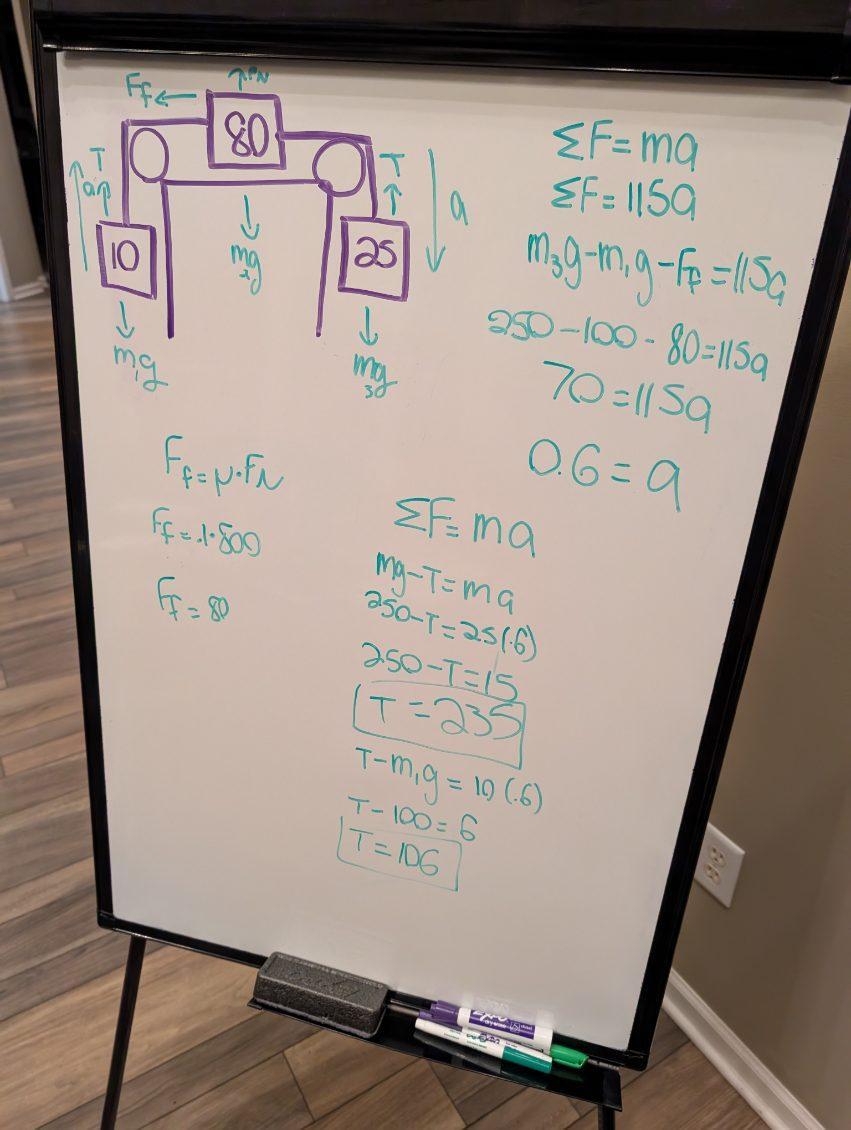 Ff ← ↑FN
80
T
a
T
a
10
25
m₁g
m₂g
m₃g
ΣF=ma
ΣF=115a
m₃g-m₁g-Ff=115a
250-100-80=115a
70=115a
0.6=a
Ff=μ·FN
Ff=.1·800
Ff=80
ΣF=ma
mg-T=ma
250-T=25(.6)
250-T=15
T=235
T-m₁g=10(.6)
T-100=6
T=106